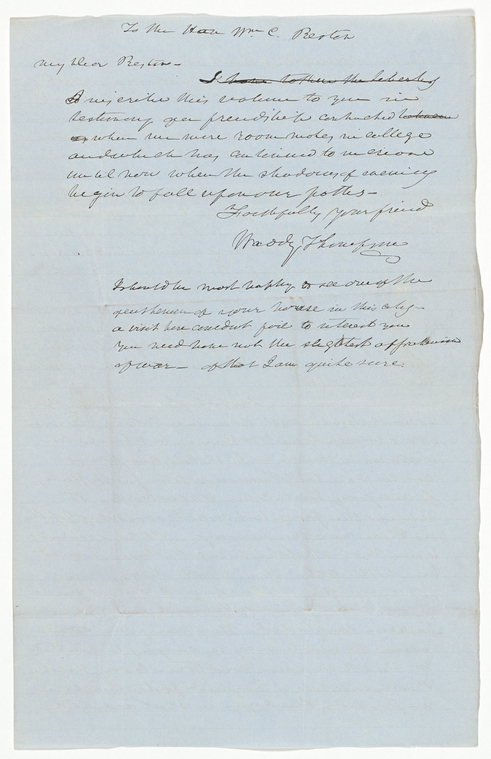 To the Hon Wm C. Preston
My Dear Preston -
I have taken the liberty
I inscribe this volume to you in
testimony of a friendship contracted between
us when we were room mates in college
and which has continued to increase
until now when the shadows of evening
begin to fall upon our paths -
Faithfully your friend
Waddy Thompson
I should be most happy to see one of the
gentlemen of your house in this city -
a visit here could not fail to interest you
You need have not the slightest apprehension
of war - of that I am quite sure.